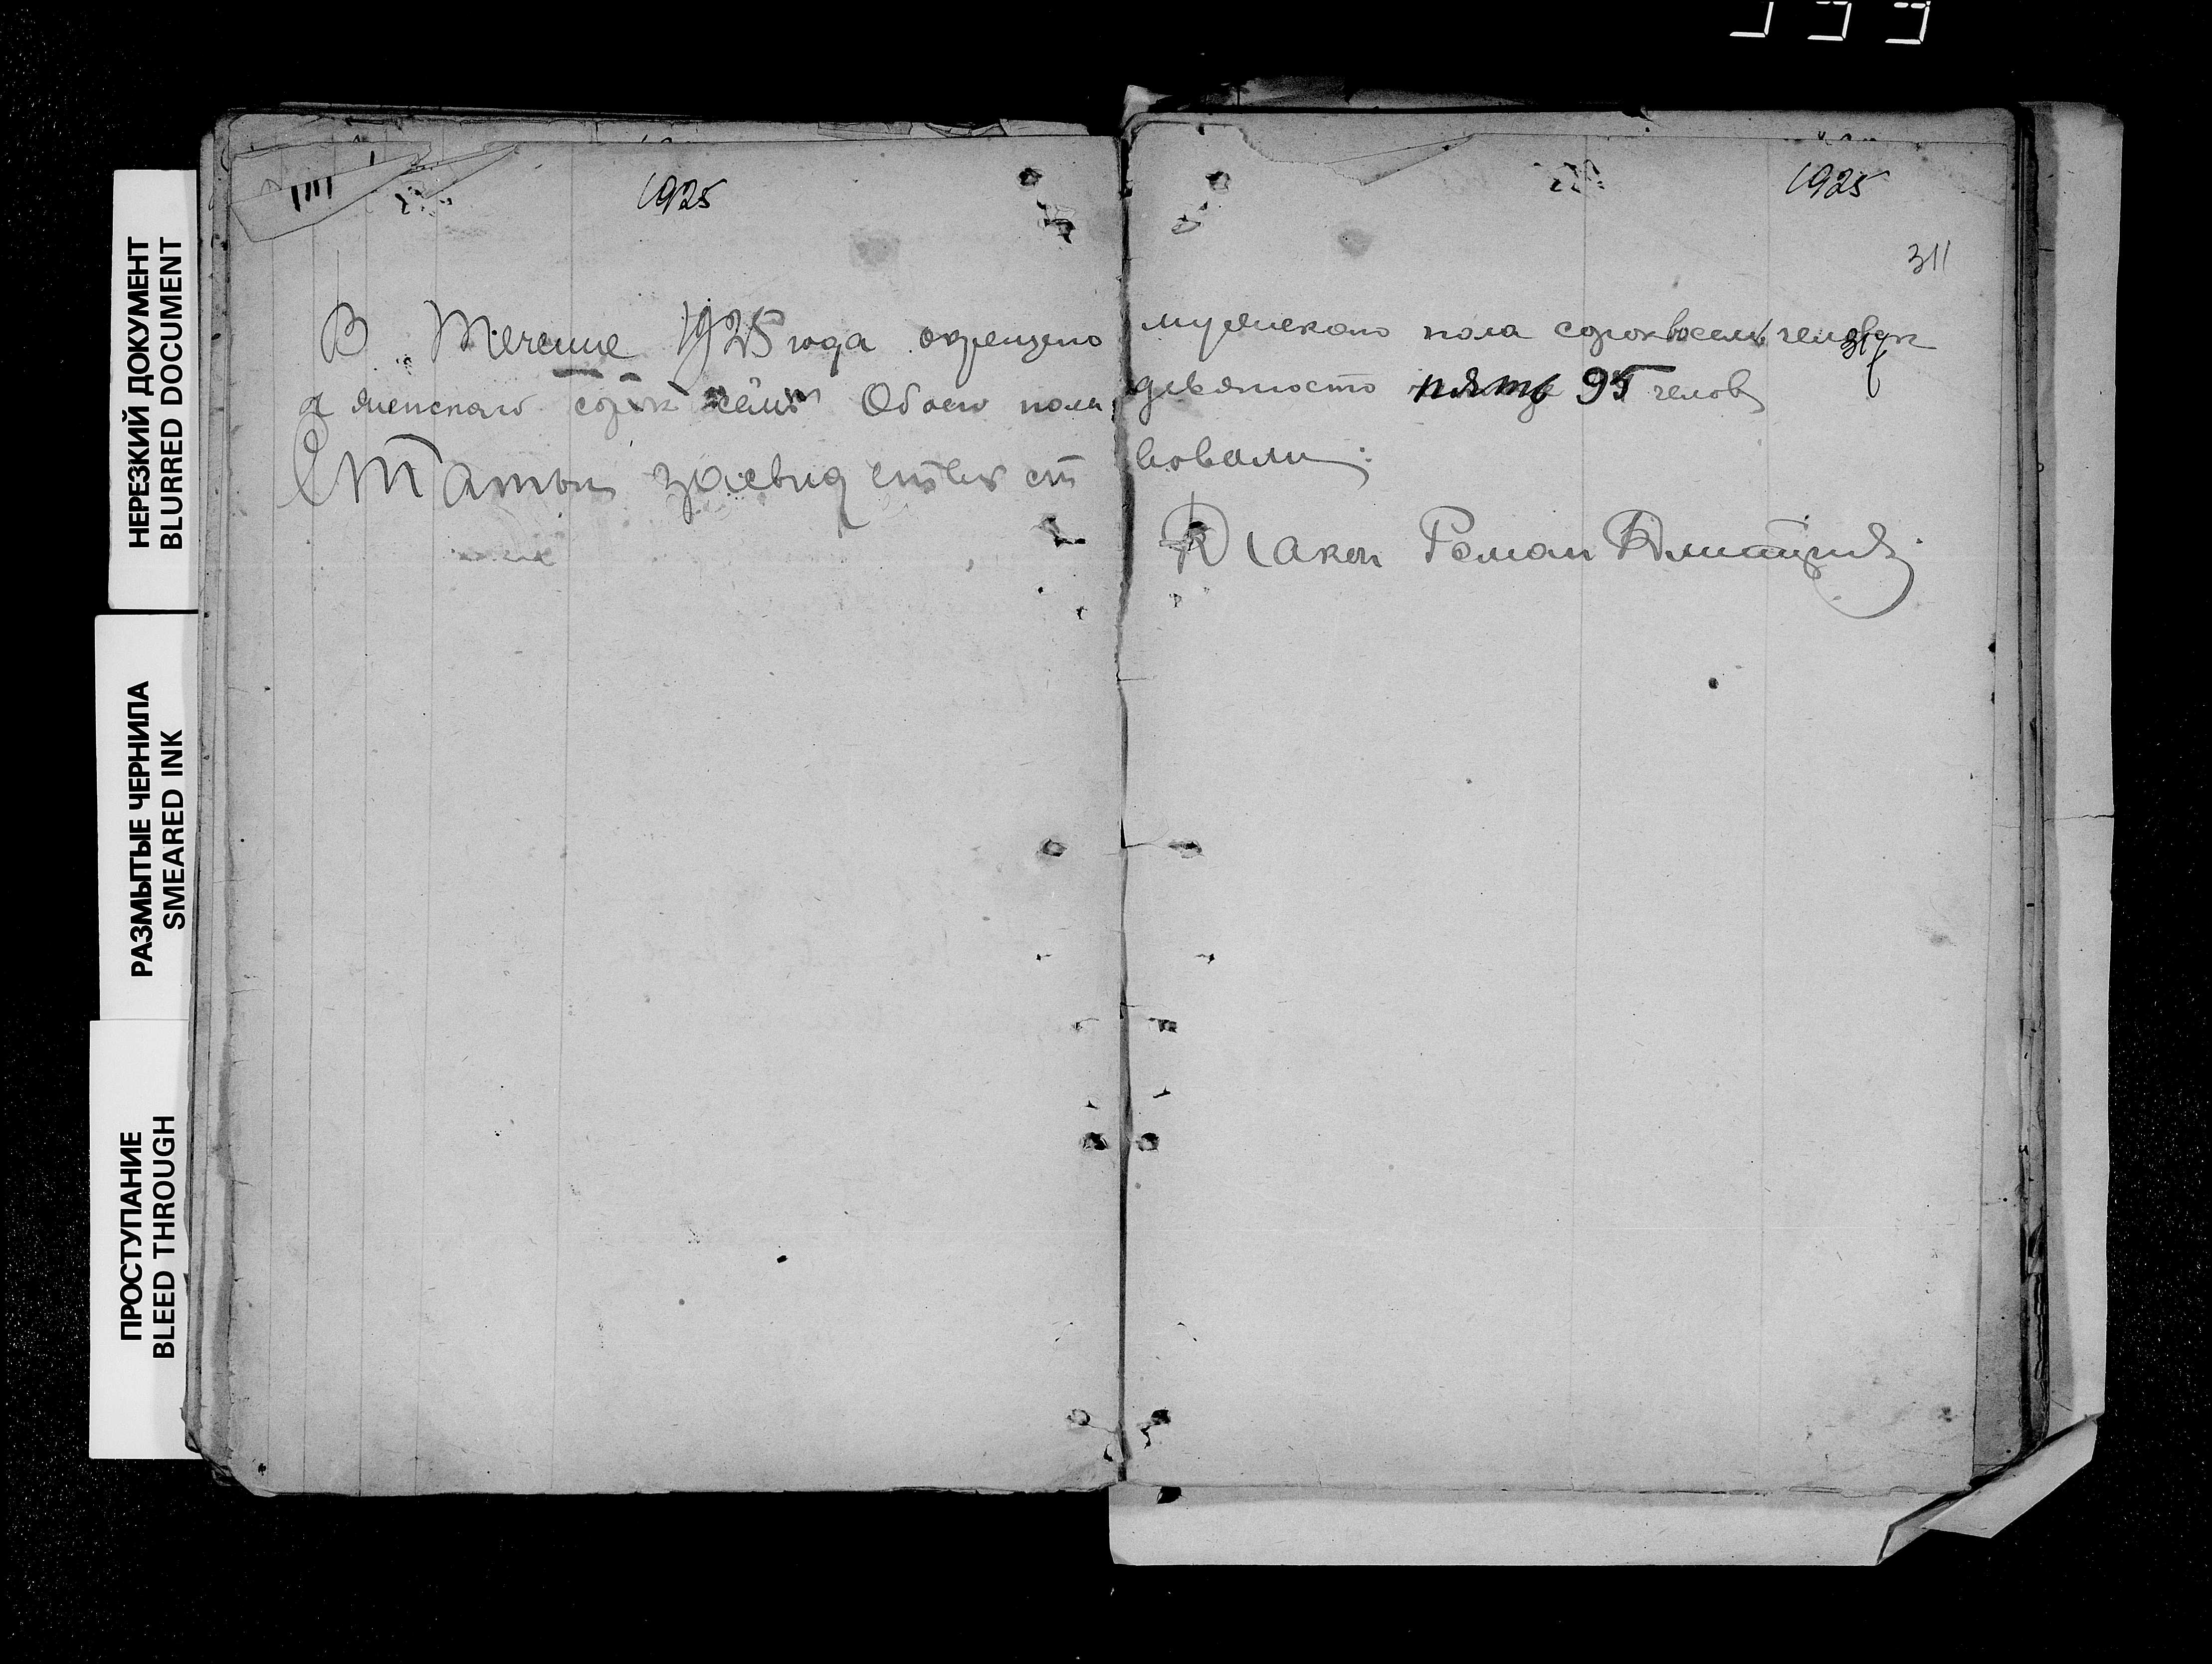 НЕРЕЗКИЙ ДОКУМЕНТ
BLURRED DOCUMENT
РАЗМЫТЫЕ ЧЕРНИЛА
SMEARED INK
ПРОСТУПАНИЕ
BLEED THROUGH
1925
1925
311
В Течение 1925 года окрещено мужскаго пола сорок восемь человек
а женскаго сорок семь Обоего пола девяносто пять 95 челов
Статьи засвидетельст вовали:
Диакон Роман